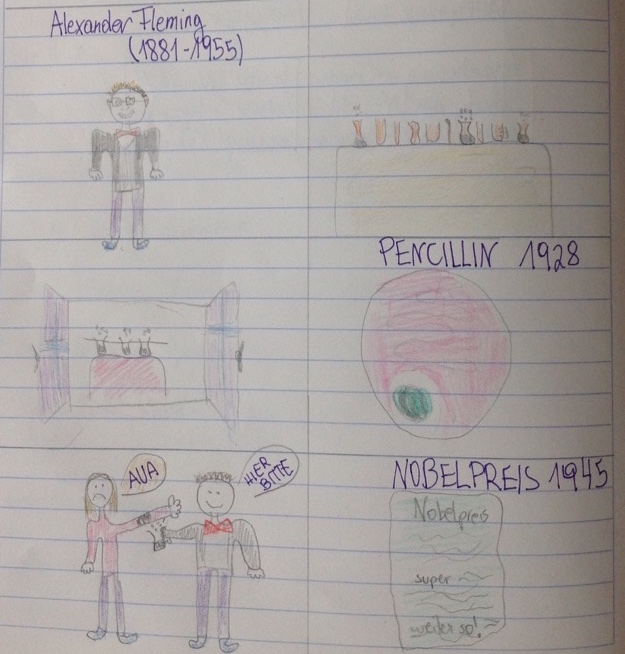 Alexander Fleming
(1881-1955)
PENCILLIN 1928
AUA
HIER
BITTE
NOBELPREIS 1945
Nobelpreis
super
weiter so!